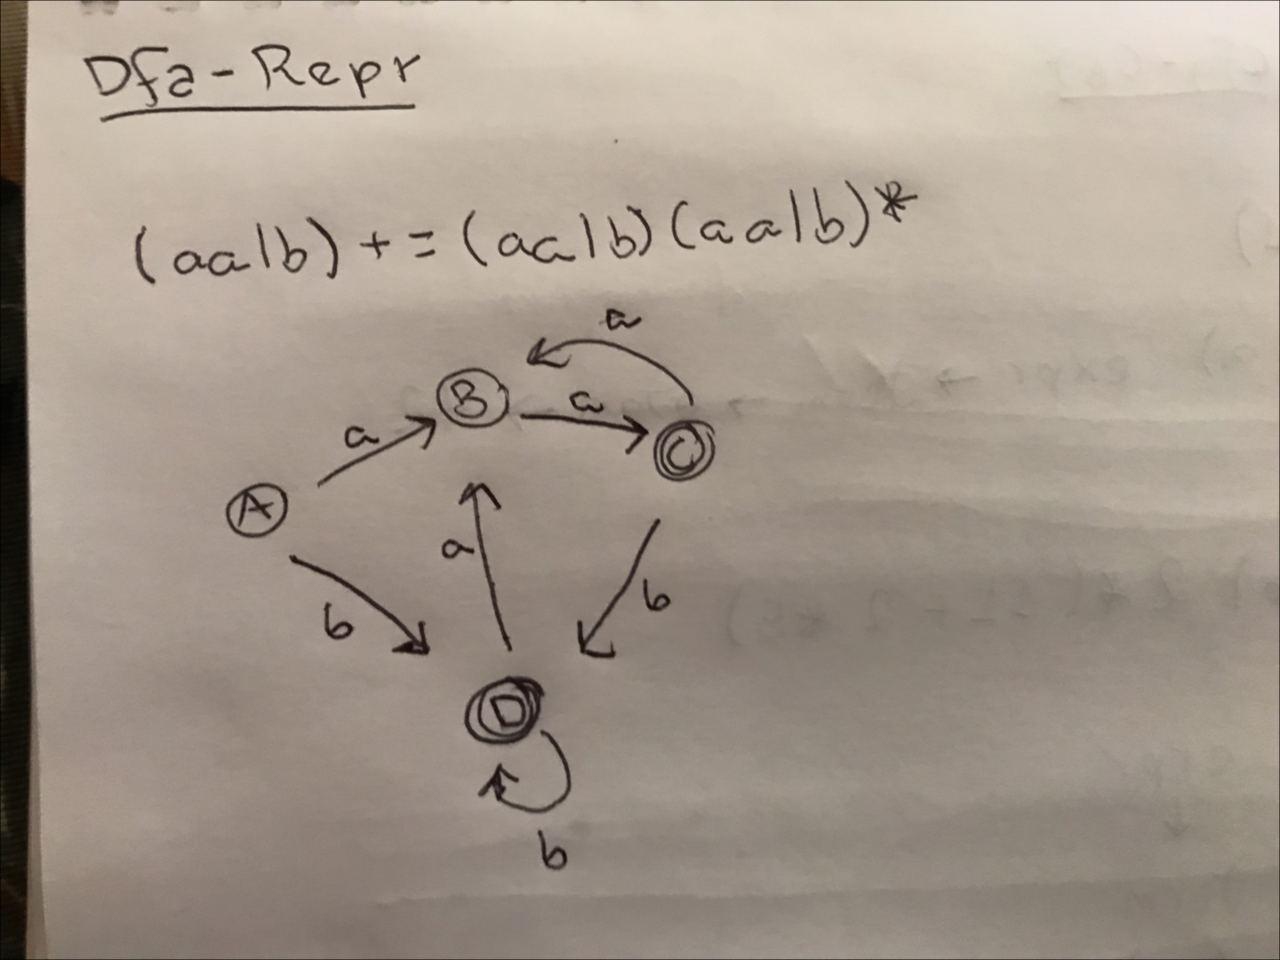 Dfa-Repr
(aa|b)+=(aa|b)(aa|b)*
a
B
a
a
C
A
a
b
b
D
b